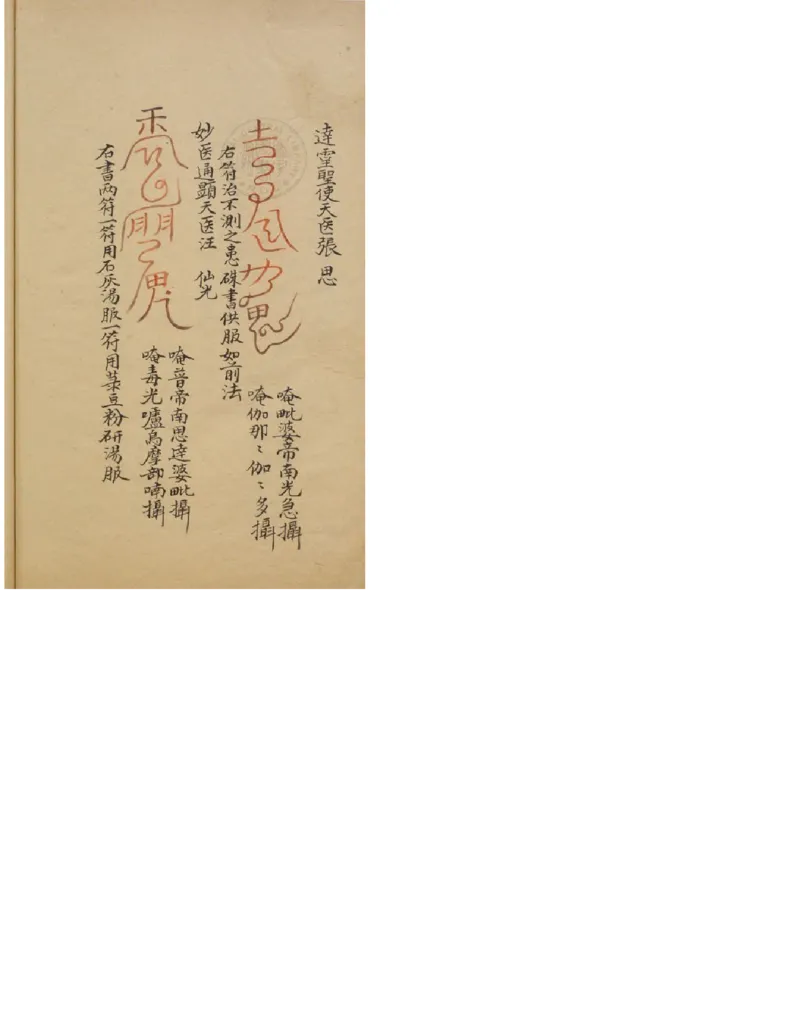 達霊聖使天医張 思
唵毗婆帝南光急攝
唵伽那〻伽〻多攝
右符治不測之患硃書供服如前法
妙医通顕天医汪 仙光
唵普帝南思達婆毗攝
唵毒光嚧烏摩部喃攝
右書两符一符用石灰湯服一符用菉豆粉研湯服